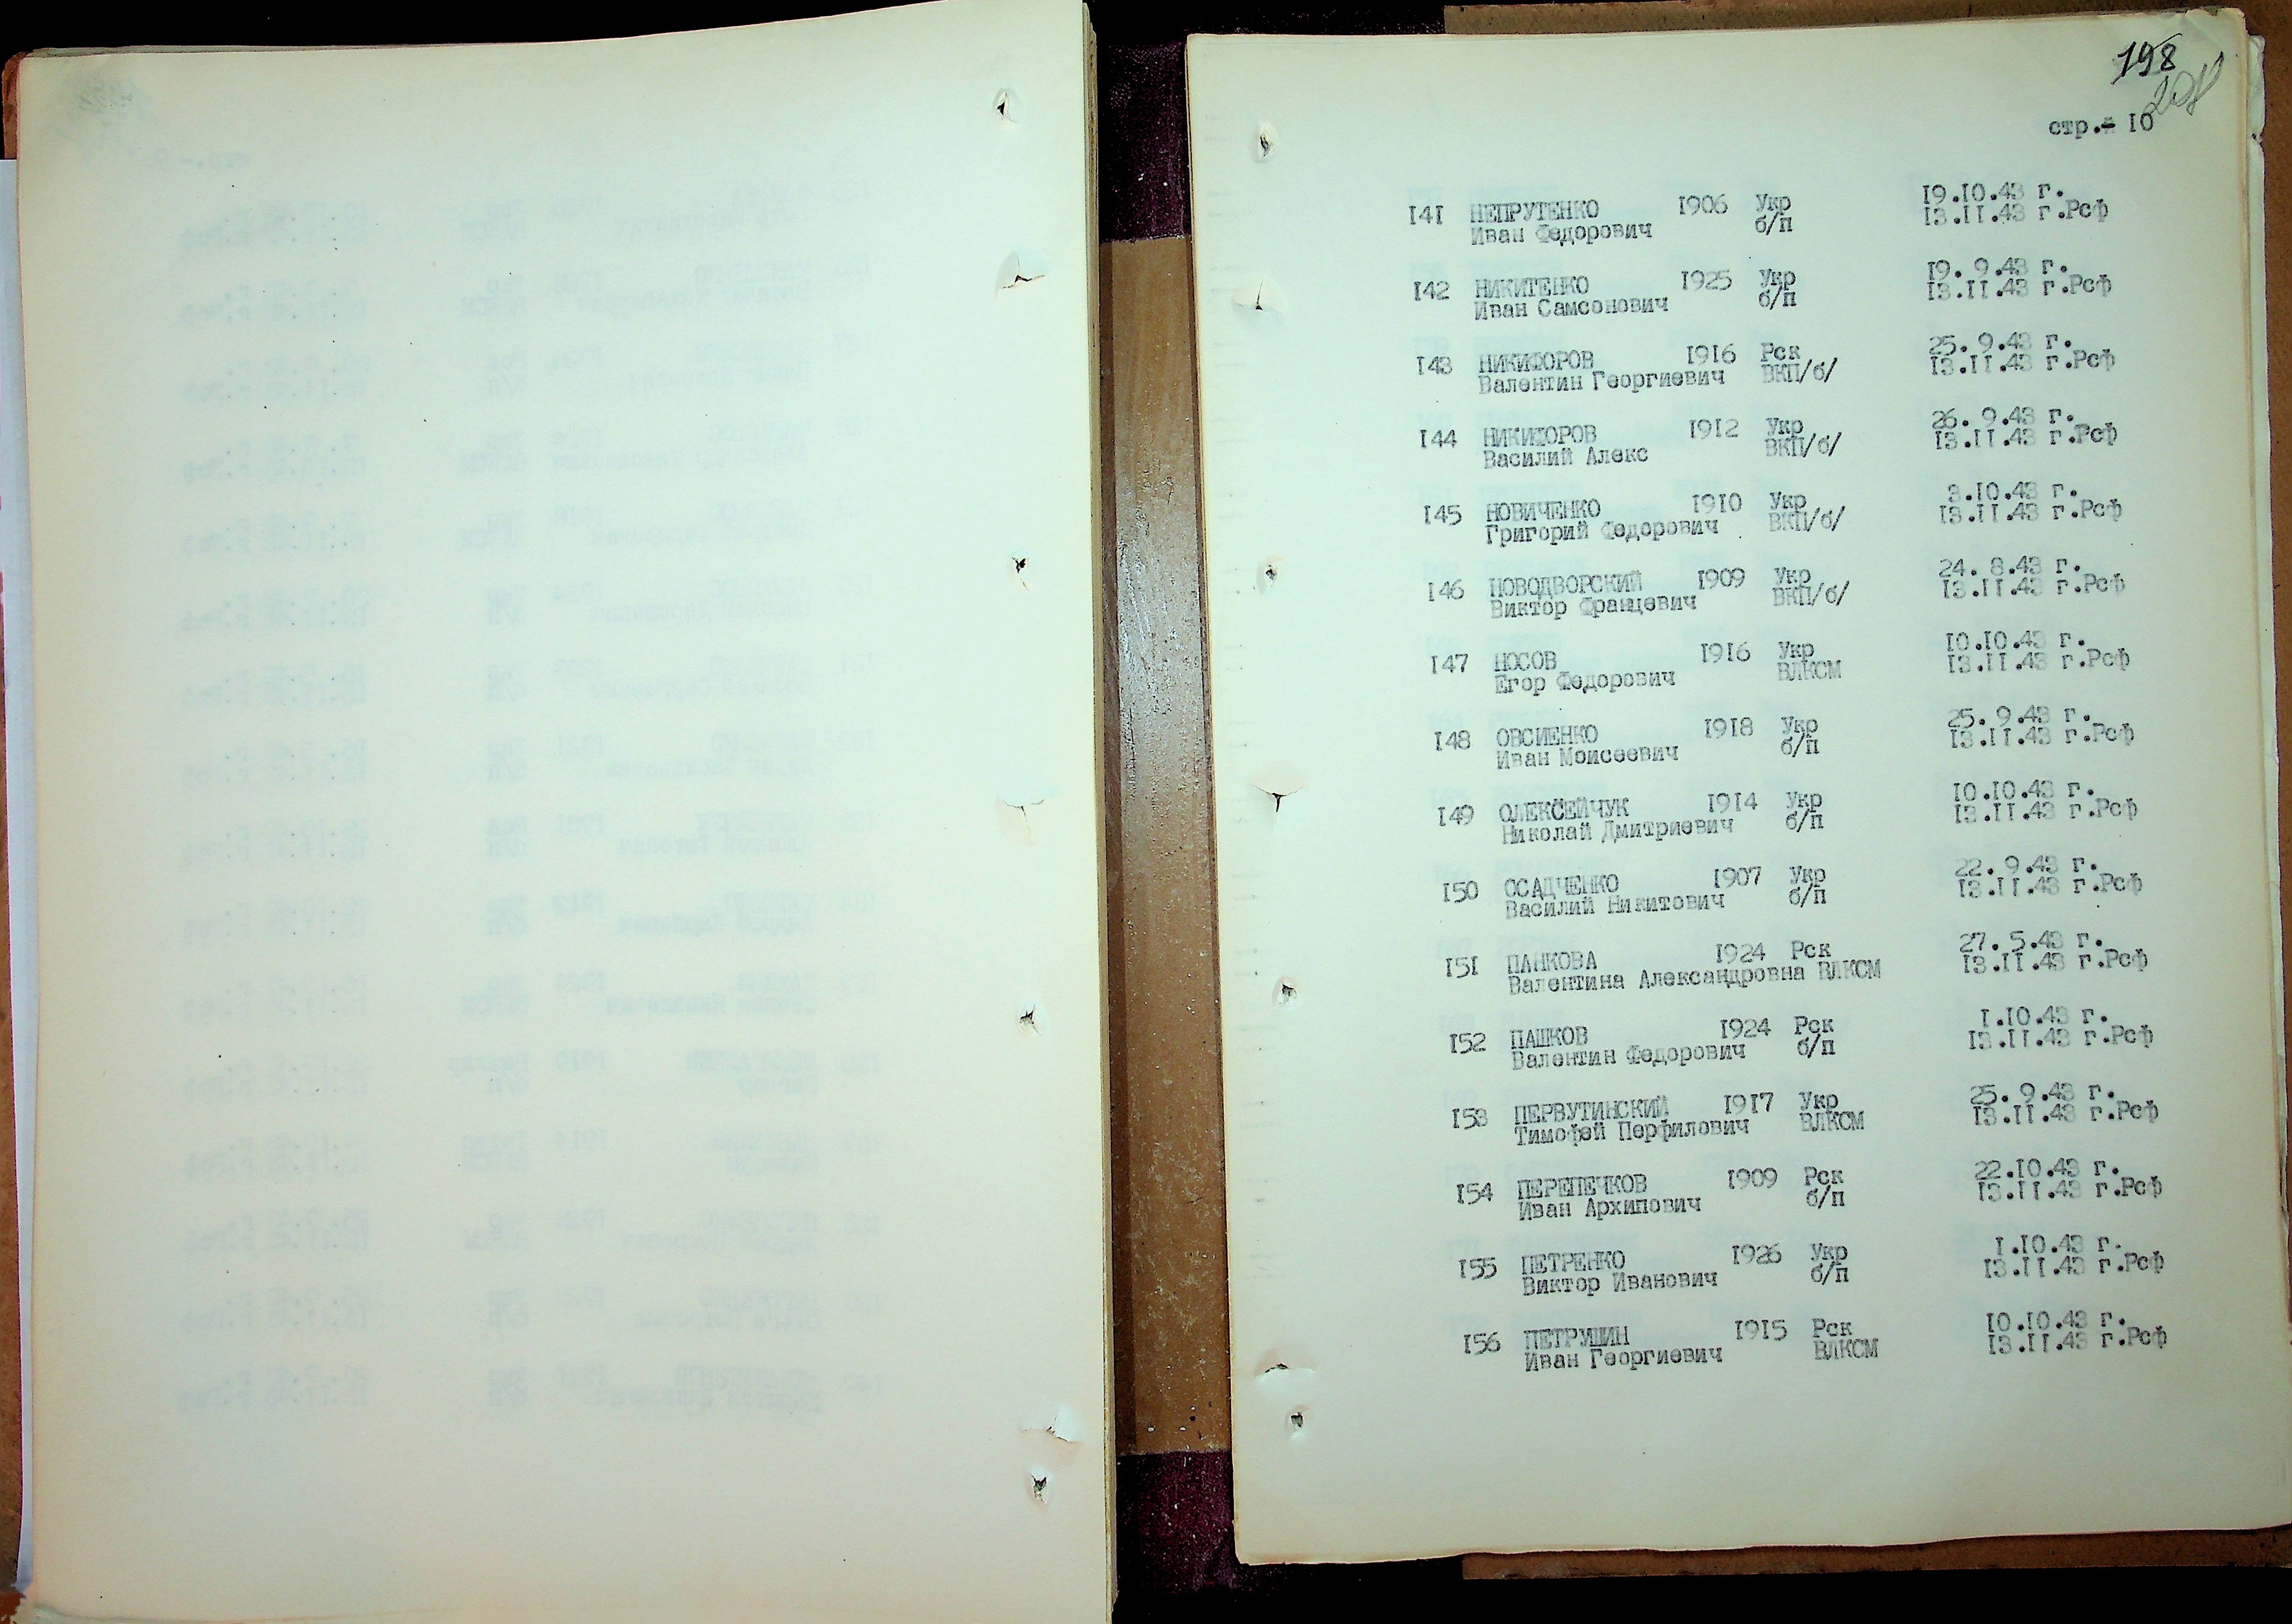 198
стр.- 10
141 НЕПРУТЕНКО 1906 Укр 19.10.43 г.
Иван Федорович б/п 13.11.43 г.Рсф
142 НИКИТЕНКО 1925 Укр 19. 9.43 г.
Иван Самсонович б/п 13.11.43 г.Рсф
143 НИКИФОРОВ 1916 Рск 25. 9.43 г.
Валентин Георгиевич ВКП/б/ 13.11.43 г.Рсф
144 НИКИФОРОВ 1912 Укр 26. 9.43 г.
Василий Алекс ВКП/б/ 13.11.43 г.Рсф
145 НОВИЧЕНКО 1910 Укр 3.10.43 г.
Григорий Федорович ВКП/б/ 13.11.43 г.Рсф
146 НОВОДВОРСКИЙ 1909 Укр 24. 8.43 г.
Виктор Францевич ВКП/б/ 13.11.43 г.Рсф
147 НОСОВ 1916 Укр 10.10.43 г.
Егор Федорович ВЛКСМ 13.11.43 г.Рсф
148 ОВСИЕНКО 1918 Укр 25. 9.43 г.
Иван Моисеевич б/п 13.11.43 г.Рсф
149 ОЛЕКСЕЙЧУК 1914 Укр 10.10.43 г.
Николай Дмитриевич б/п 13.11.43 г.Рсф
150 ОСАДЧЕНКО 1907 Укр 22. 9.43 г.
Василий Никитович б/п 13.11.43 г.Рсф
151 ПАНКОВА 1924 Рск 27. 5.43 г.
Валентина Александровна ВЛКСМ 13.11.43 г.Рсф
152 ПАШКОВ 1924 Рск 1.10.43 г.
Валентин Федорович б/п 13.11.43 г.Рсф
153 ПЕРВУТИНСКИЙ 1917 Укр 25. 9.43 г.
Тимофей Перфилович ВЛКСМ 13.11.43 г.Рсф
154 ПЕРЕПЕЧКОВ 1909 Рск 22.10.43 г.
Иван Архипович б/п 13.11.43 г.Рсф
155 ПЕТРЕНКО 1926 Укр 1.10.43 г.
Виктор Иванович б/п 13.11.43 г.Рсф
156 ПЕТРУШИН 1915 Рск 10.10.43 г.
Иван Георгиевич ВЛКСМ 13.11.43 г.Рсф